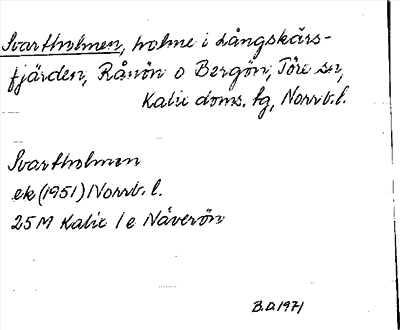 Svartholmen, holme i Långskärs-
fjärden, Rånön o Bergön, Töre sn,
Kalix doms. tg, Norrb. l.
Svartholmen
ek (1951) Norrb. l.
25M Kalix l e Näverön
B.D. 1971